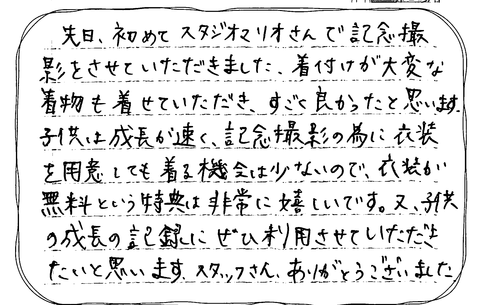 先日、初めてスタジオマリオさんで記念撮
影をさせていただきました、着付けが大変な
着物も着せていただき、すごく良かったと思います。
子供は成長が速く、記念撮影の為に衣装
を用意しても着る機会は少ないので、衣装が
無料という特典は非常に嬉しいです。又、子供
の成長の記録にぜひ利用させていただき
たいと思います。スタッフさん、ありがとうございました